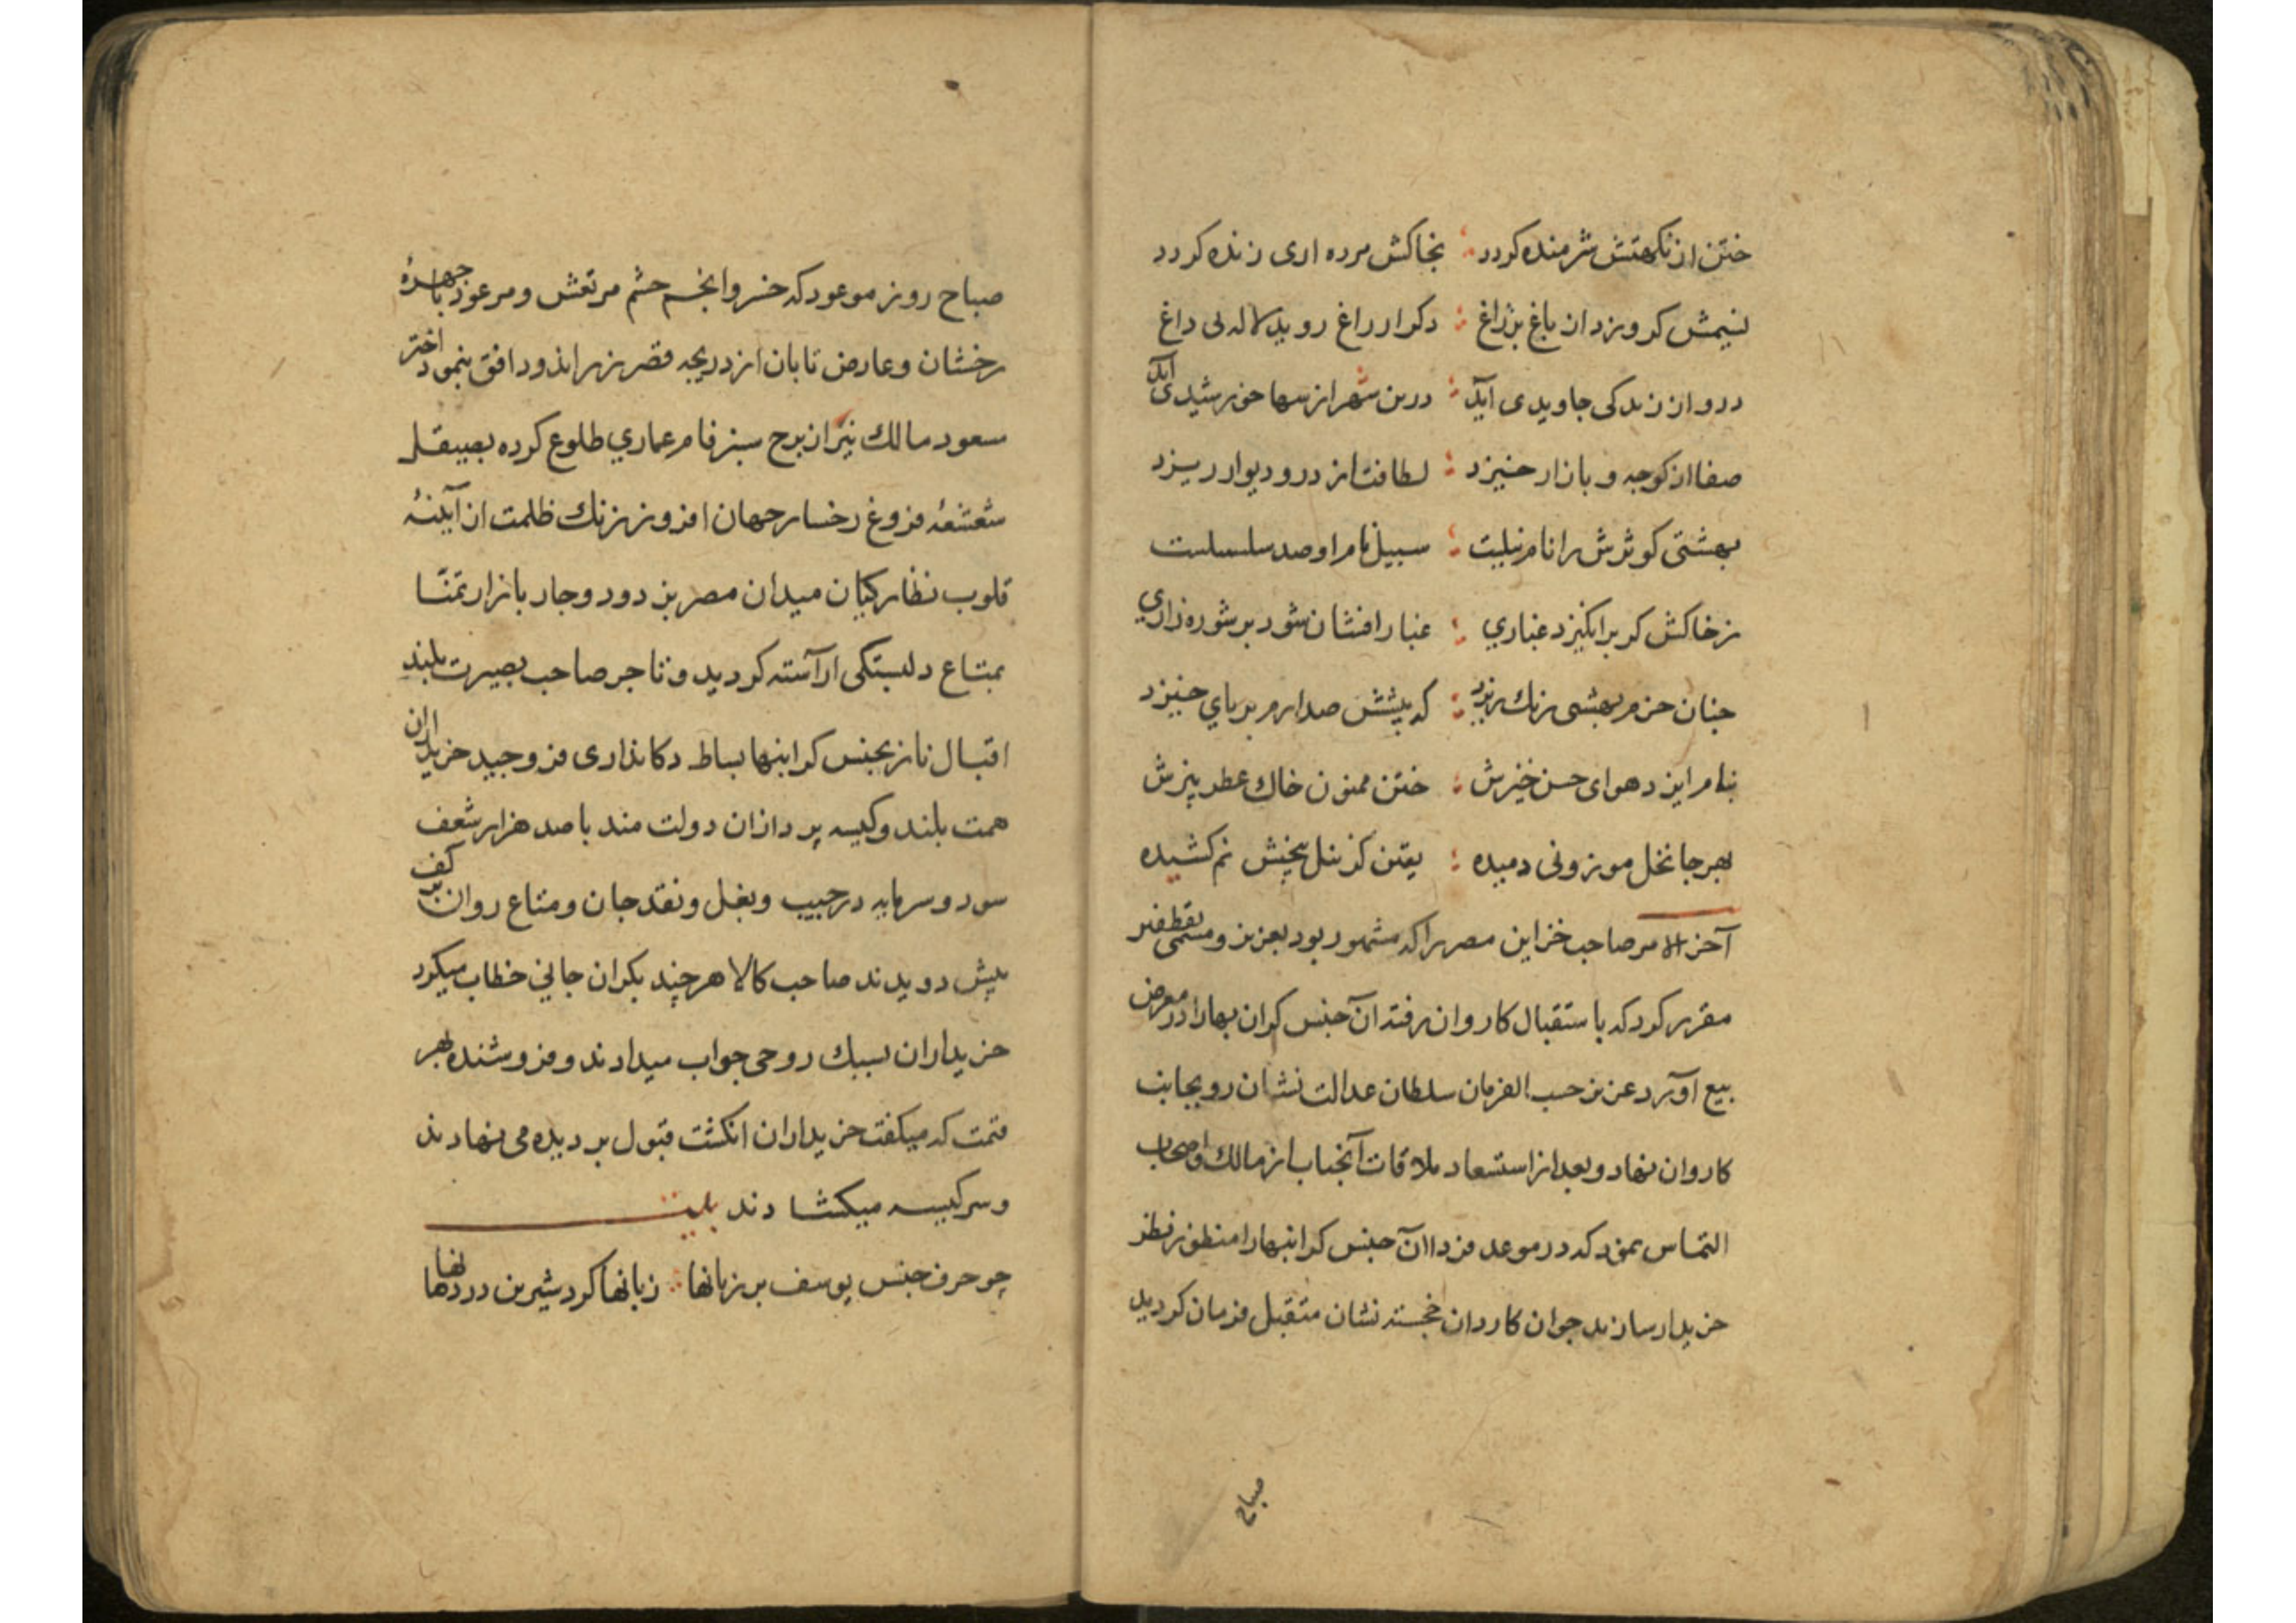 ختن از نکهتش شرمنده کردد بخاکش مرده اری زنده کردد
نسیمش کر وزد ان باغ بر راغ دکر از راغ روید لاله بی داغ
درو از زندکی جاویدی آید درین شهر از سها خورشیدی آید
صفا از کوجه و بازار خیزد لطافت از در و دیوار ریزد
بهشتی کوثرش را نام نیلیت سبیل نام او صد سلسلبیلت
ز خاکش کر برانکیزد غباری غبار افشان شود بر شوره زاری
جنان خرم بهشتی رنک ریزد که پیشش صد ارم بر پای خیزد
بنام ایزد هوای حسن خیزش ختن ممنون خاک عطر بیزش
بهر جا نخل موزونی دمیده یقین کز نیل بیخش نم کشیده
آخر الامر صاحب خزاین مصر را که مشهور بود بعزیز و مسمی بقطفیر
مقرر کرد که باستقبال کاروان رفته آن جنس کران بها را در معرض
بیع آورد عزیز حسب الفرمان سلطان عدالت نشان رو بجانب
کاروان نهاد و بعد از استسعاد ملاقات آنجناب از مالک و اصحاب
التماس نمود که در موعد فردا آن جنس کرانبها را منظور نظر
خریدار سازند جوان کاردان خجسته نشان متقبل فرمان کردید
صباح
صباح روز موعود که خسرو انجم حشم مرتعش و مرعود با جهرهٔ
رخشان و عارض تابان از دریجه قصر زر اندود افق بنمود اختر
سعود مالک نیز از برج سبز فام عماری طلوع کرده بصیقل
شعشعهٔ فروغ رخسار جهان افروز زنک ظلمت از آینهٔ
قلوب نظارکیان میدان مصر بزدود و جار بازار تمنّا
بمتاع دلبستکی اراسته کردید و تاجر صاحب بصیرت بلند
اقبال ناز بجنس کرانبها بساط دکانداری فرو جید خریداران
همت بلند و کیسه پردازان دولت مند با صد هزار شعف
سود و سرمایه در جیب و بغل و نقد جان و متاع روان بر کف
پیش دویدند صاحب کالا هر چند بکران جانی خطاب میکرد
خریداران بسبک روحی جواب میدادند و فروشنده بهر
قیمت که میکفت خریداران انکشت قبول بر دیده می نهادند
و سر کیسه میکشادند بیت
چو حرف جنس یوسف بر زبانها زبانها کرد شیرین در دهانها